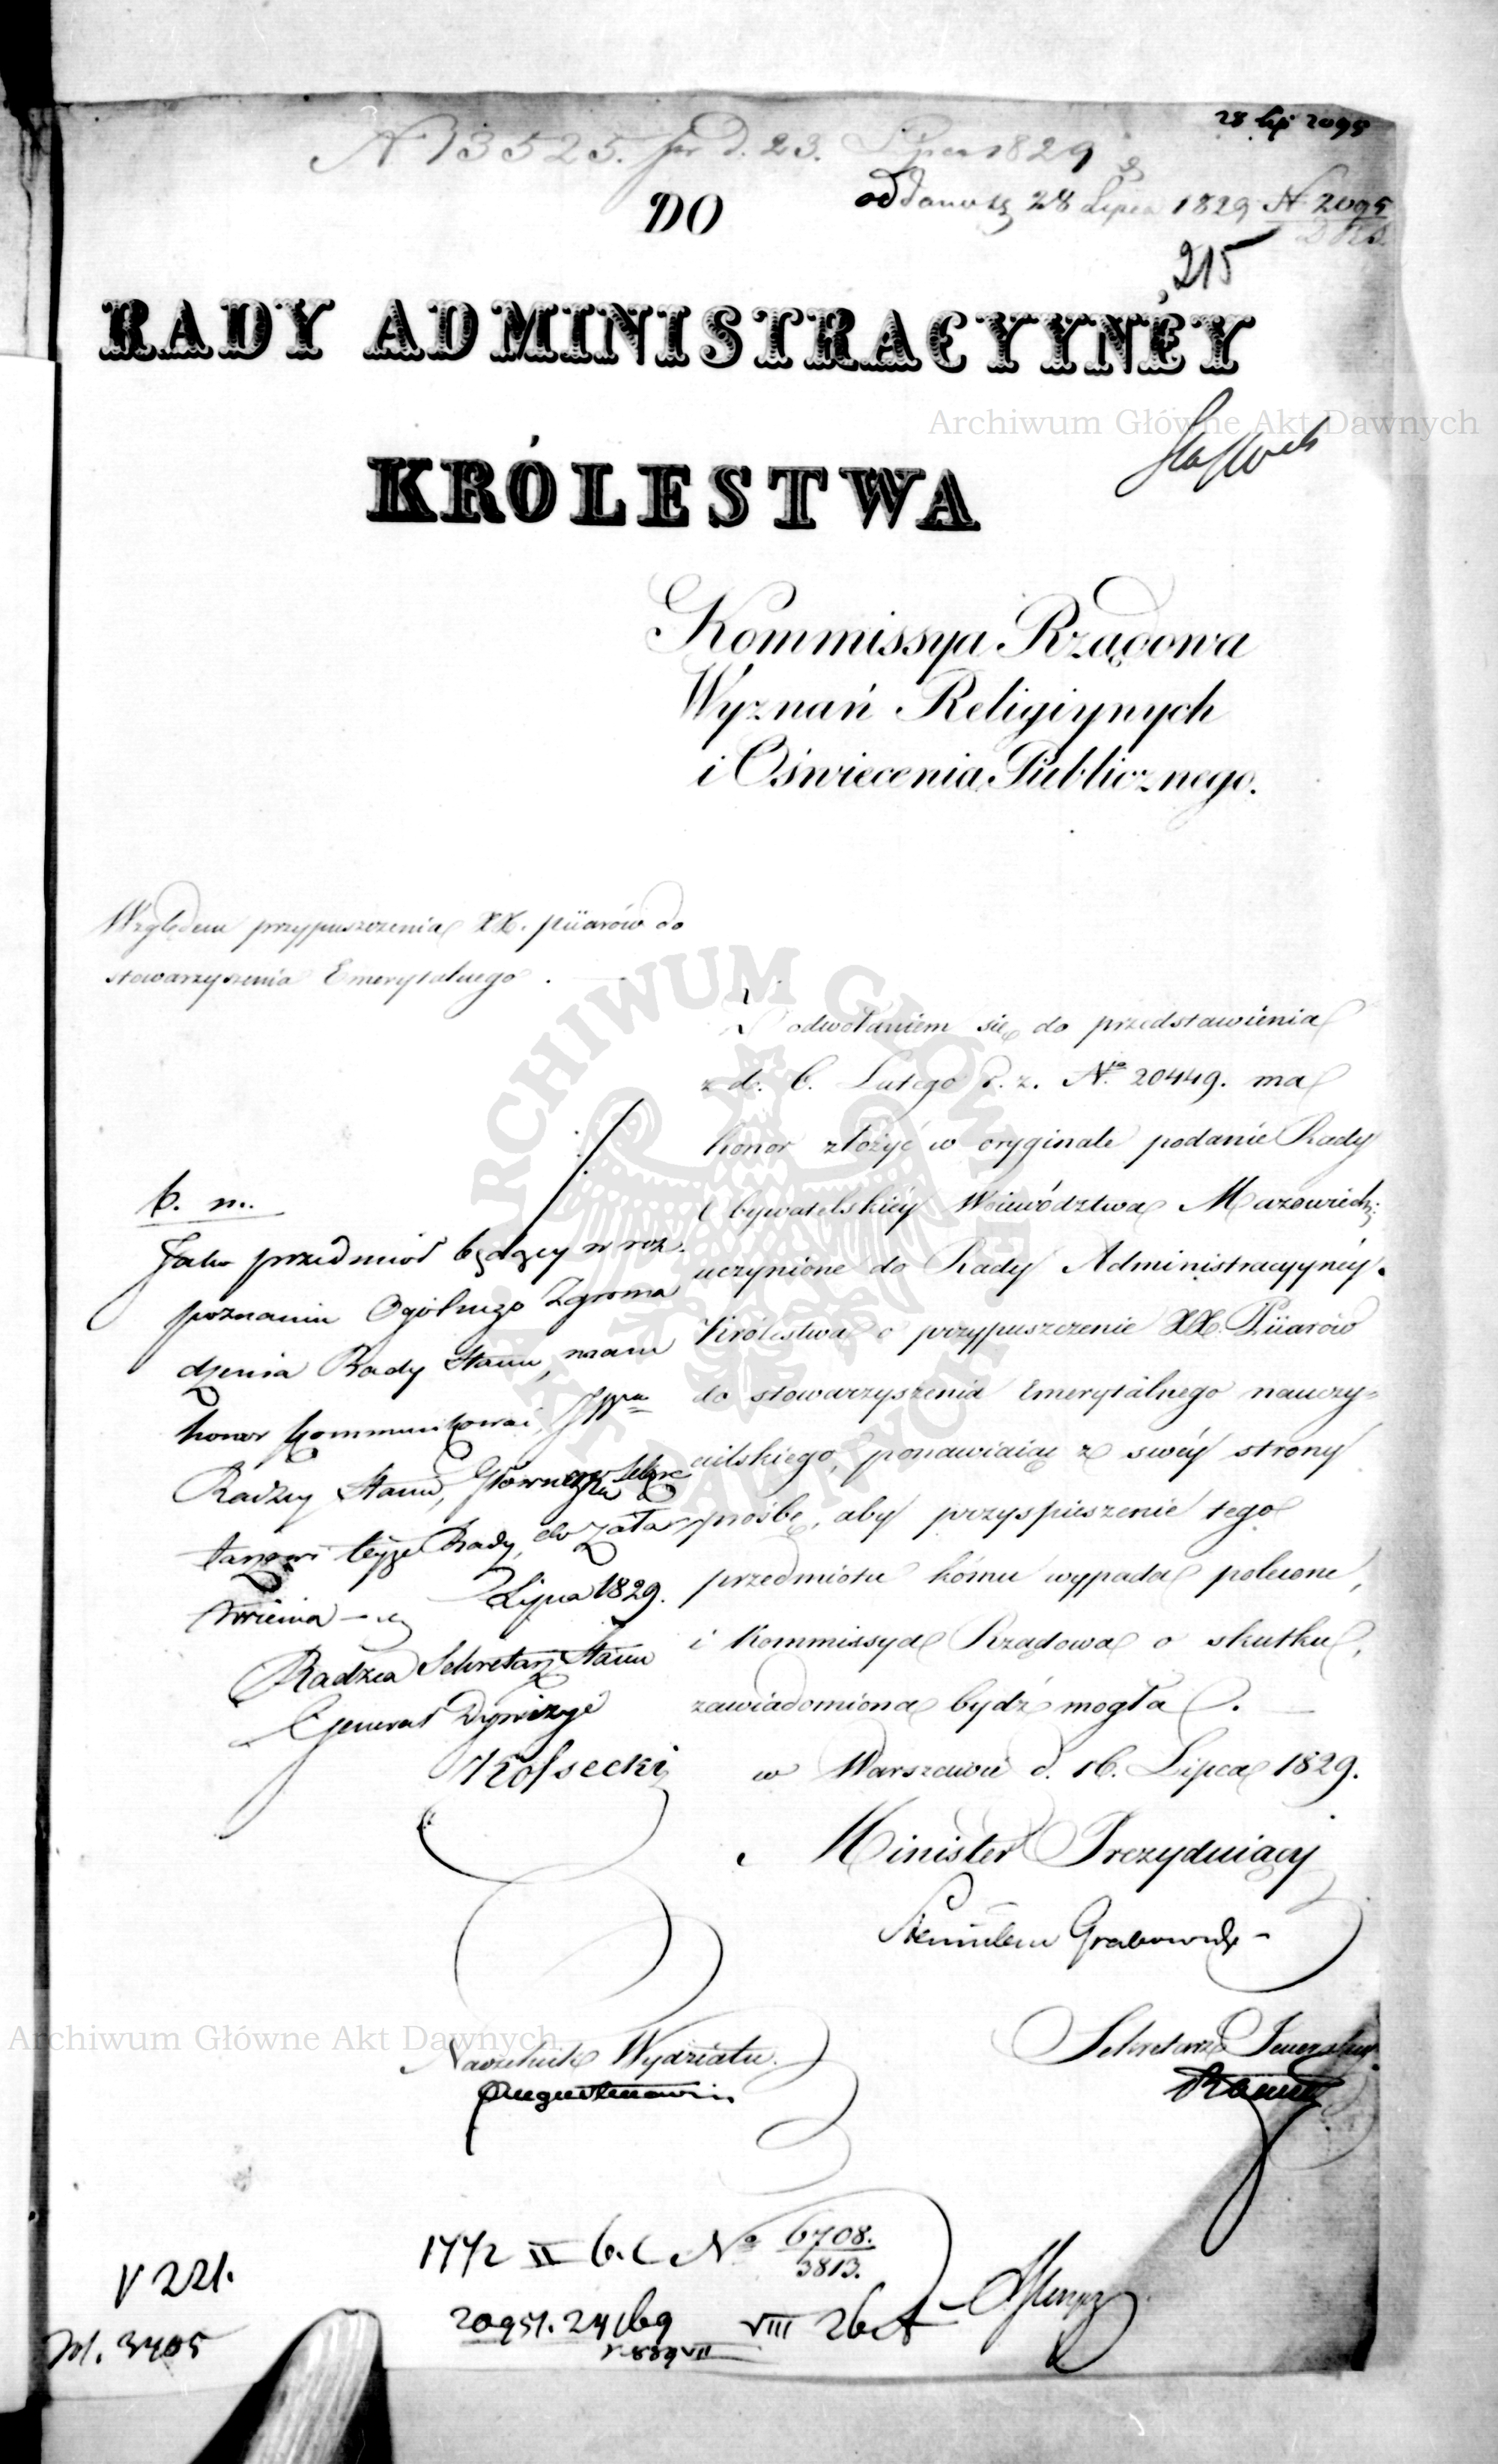 28 Lip 2095
N 13525. pr d. 23. Lipca 1829
oddano 28 Lipca 1829 N 2095
DO
215
RADY ADMINISTRACYYNÉY
Archiwum Główne Akt Dawnych
KRÓLESTWA
Kommissya Rządowa
Wyznań Religiynych
i Oświecenia Publicznego.
Względem przypuszczenia XX. piiarów do
stowarzyszenia Emerytalnego.
Z odwołaniem się do przedstawienia
z d. 6. Lutego r. z. No. 20449. ma
honor złożyć w oryginale podanie Rady
Obywatelskiéy Woiewództwa Mazowieckie:
uczynione do Rady Administracyynéy
Królestwa o przypuszczenie XX. Piiarów
do stowarzyszenia Emerytalnego nauczy=
cielskiego, ponawiaiąc z swéy strony
prośbę, aby przyspieszenie tego
przedmiotu kómu wypada polecone,
i Kommissya Rządowa o skutku,
zawiadomiona bydź mogła.
w Warszawie d. 16. Lipca 1829.
Minister Prezyduiący
Stanisław Grabowski
Sekretarz Jeneralny
b. m.
Jako przedmiot będący w roz-
poznaniu Ogólnego Zgroma
dzenia Rady Stanu, mam
honor kommunikować JPanu
Radzcy Stanu, Głównemu Sekre
tarzowi teyże Rady, do zała
twienia
Lipca 1829.
Radzca Sekretarz Stanu
Generał Dywizyi
Kossecki
Archiwum Główne Akt Dawnych
Naczelnik Wydziału.
Augustinowicz
1772 II b.c No 6708.
3813.
V 221.
2095/. 24/69 VIII 26
M. 3705
V 889 VII
ARCHIWUM GŁÓWNE AKT DAWNYCH